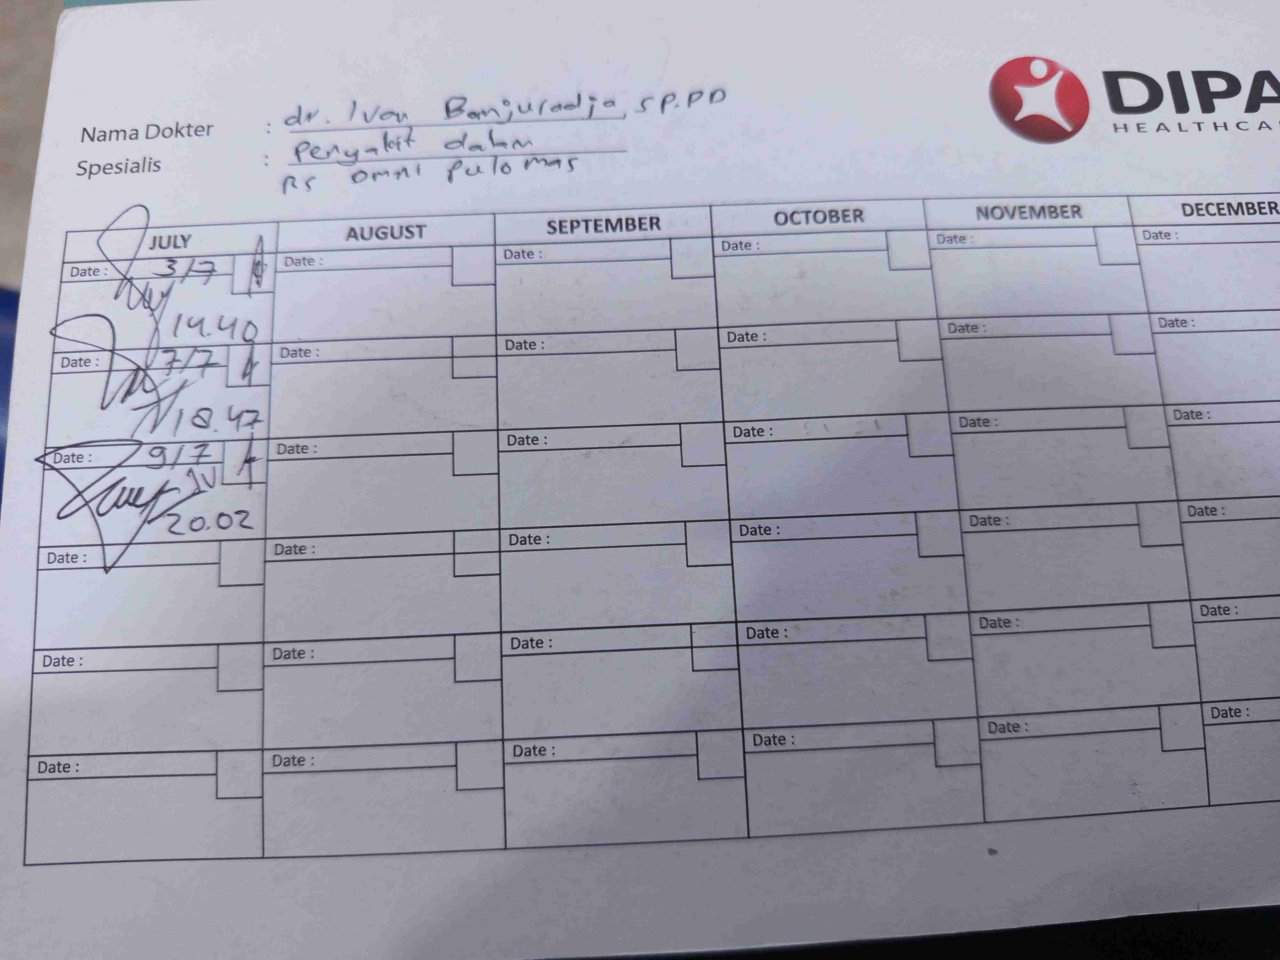 DIPA
HEALTHCA
Nama Dokter : dr. Ivan Banjuradja, SP.PD
Spesialis : Penyakit dalam
RS Omni Pulomas
JULY AUGUST SEPTEMBER OCTOBER NOVEMBER DECEMBER
Date : 3/7 Date : Date : Date : Date : Date :
14.40
Date : 7/7 Date : Date : Date : Date : Date :
18.47
Date : 9/7 Date : Date : Date : Date : Date :
JV
20.02
Date : Date : Date : Date : Date : Date :
Date : Date : Date : Date : Date : Date :
Date : Date : Date : Date : Date : Date :